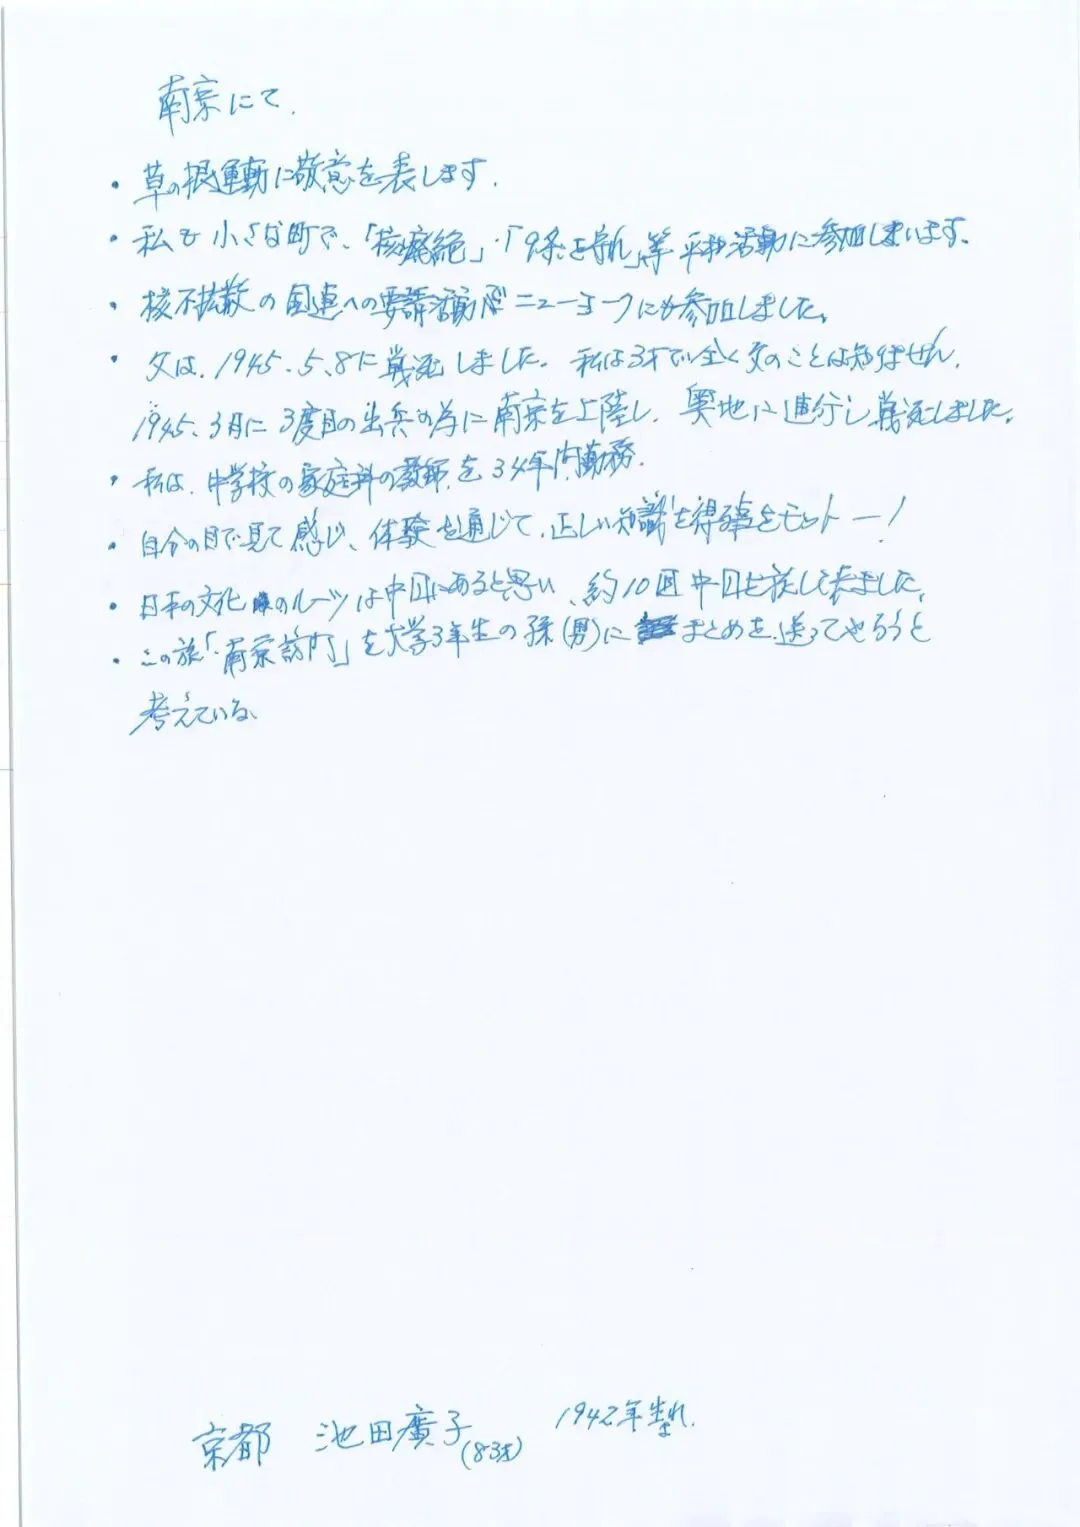 南京にて.
・草の根運動に敬意を表します.
・私も小さな町で、「核廃絶」・「9条を守れ」等平和活動に参加しています.
・核不拡散の国連への要請活動がニューヨークにも参加しました。
・父は、1945.5.8に戦死しました。私は3才で全く父のことは知りません.
1945.3月に3度目の出兵の為に南京を上陸し、奥地に連行し戦死しました。
・私は、中学校の家庭科の教師を34年内勤務.
・自分の目で見て感じ、体験を通じて、正しい知識を得る事をモットー!
・日本の文化のルーツは中国にあると思い、約10回中国を旅して来ました。
・この旅「南京訪問」を大学3年生の孫(男)にまとめを送ってやろうと
考えている。
京都 池田廣子(83才) 1942年生れ.